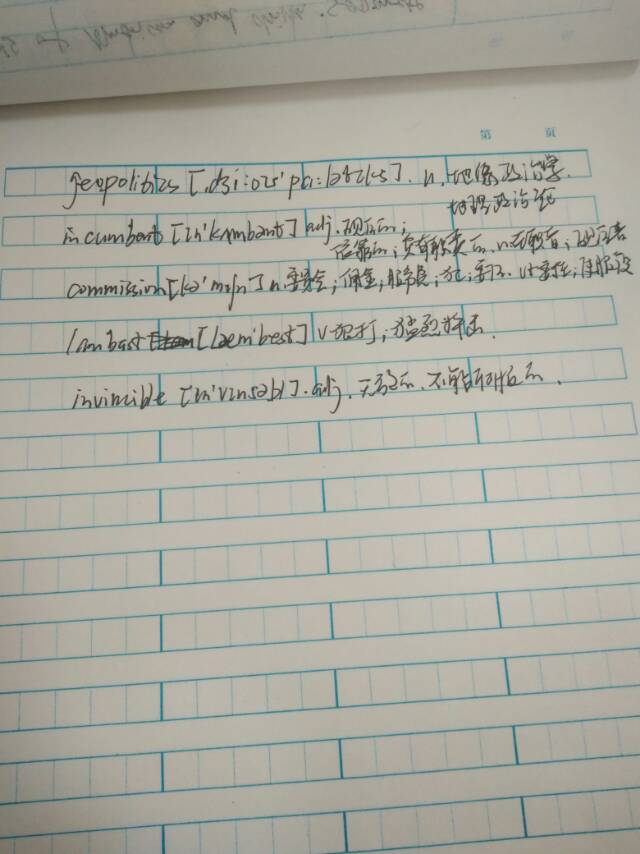 of America and
第 页
geopolitics [,dʒi:oʊ'pɑ:lətɪks]. n. 地缘政治学.
地理政治论
incumbent [ɪn'kʌmbənt] adj. 现任的;
依靠的; 负有职责的. n. 在职者; 现任者
commission [kə'mɪʃn] n. 委员会; 佣金; 服务费; 委
lambast [læm'best] v 狠打; 猛烈抨击.
invincible [ɪn'vɪnsəbl]. adj. 无敌的. 不能征服的.